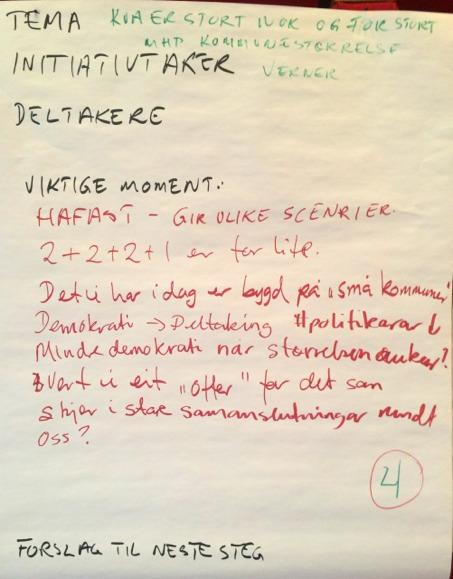 TEMA KVA ER STORT NOK OG FOR STORT
MHP KOMMUNESTØRRELSE
INITIATIVTAKER VERNER
DELTAKERE
VIKTIGE MOMENT:
HAFAST - GIR ULIKE SCENRIER.
2+2+2+1 er for lite.
Det vi har i dag er bygd på "små kommuner"
Demokrati → Deltaking #politikarar ↓
Minde demokrati når størrelsen aukar?
Vert vi eit "offer" for det som
skjer i store samanslutningar rundt
oss?
4
FORSLAG TIL NESTE STEG